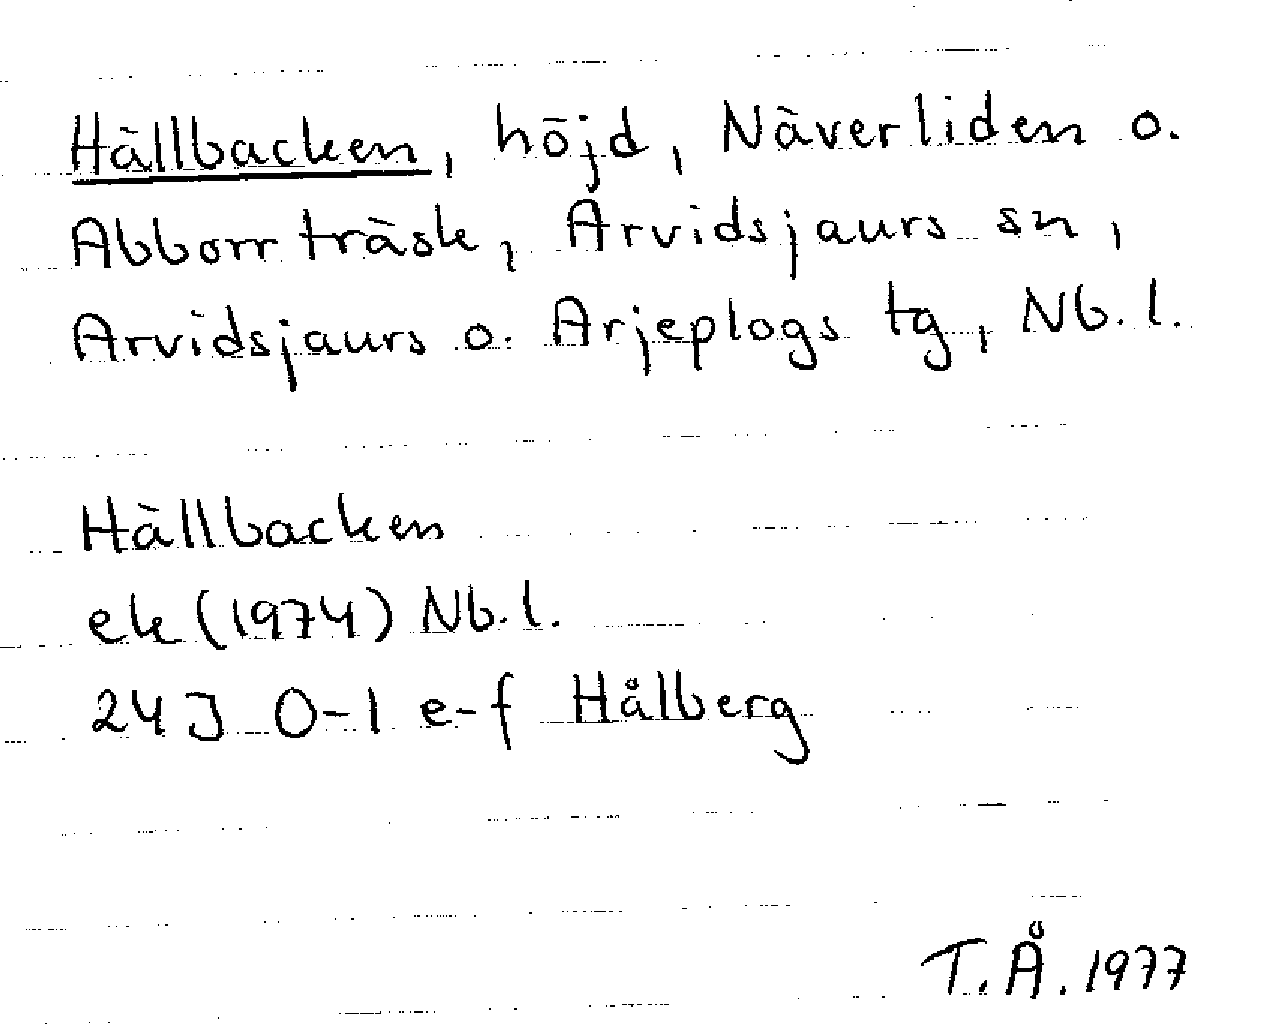 Hällbacken, höjd, Näverliden o.
Abborrträsk, Arvidsjaurs sn,
Arvidsjaurs o. Arjeplogs tg, Nb. l.
Hällbacken
ek (1974) Nb. l.
24 J 0-1 e-f Hålberg
T. Å. 1977